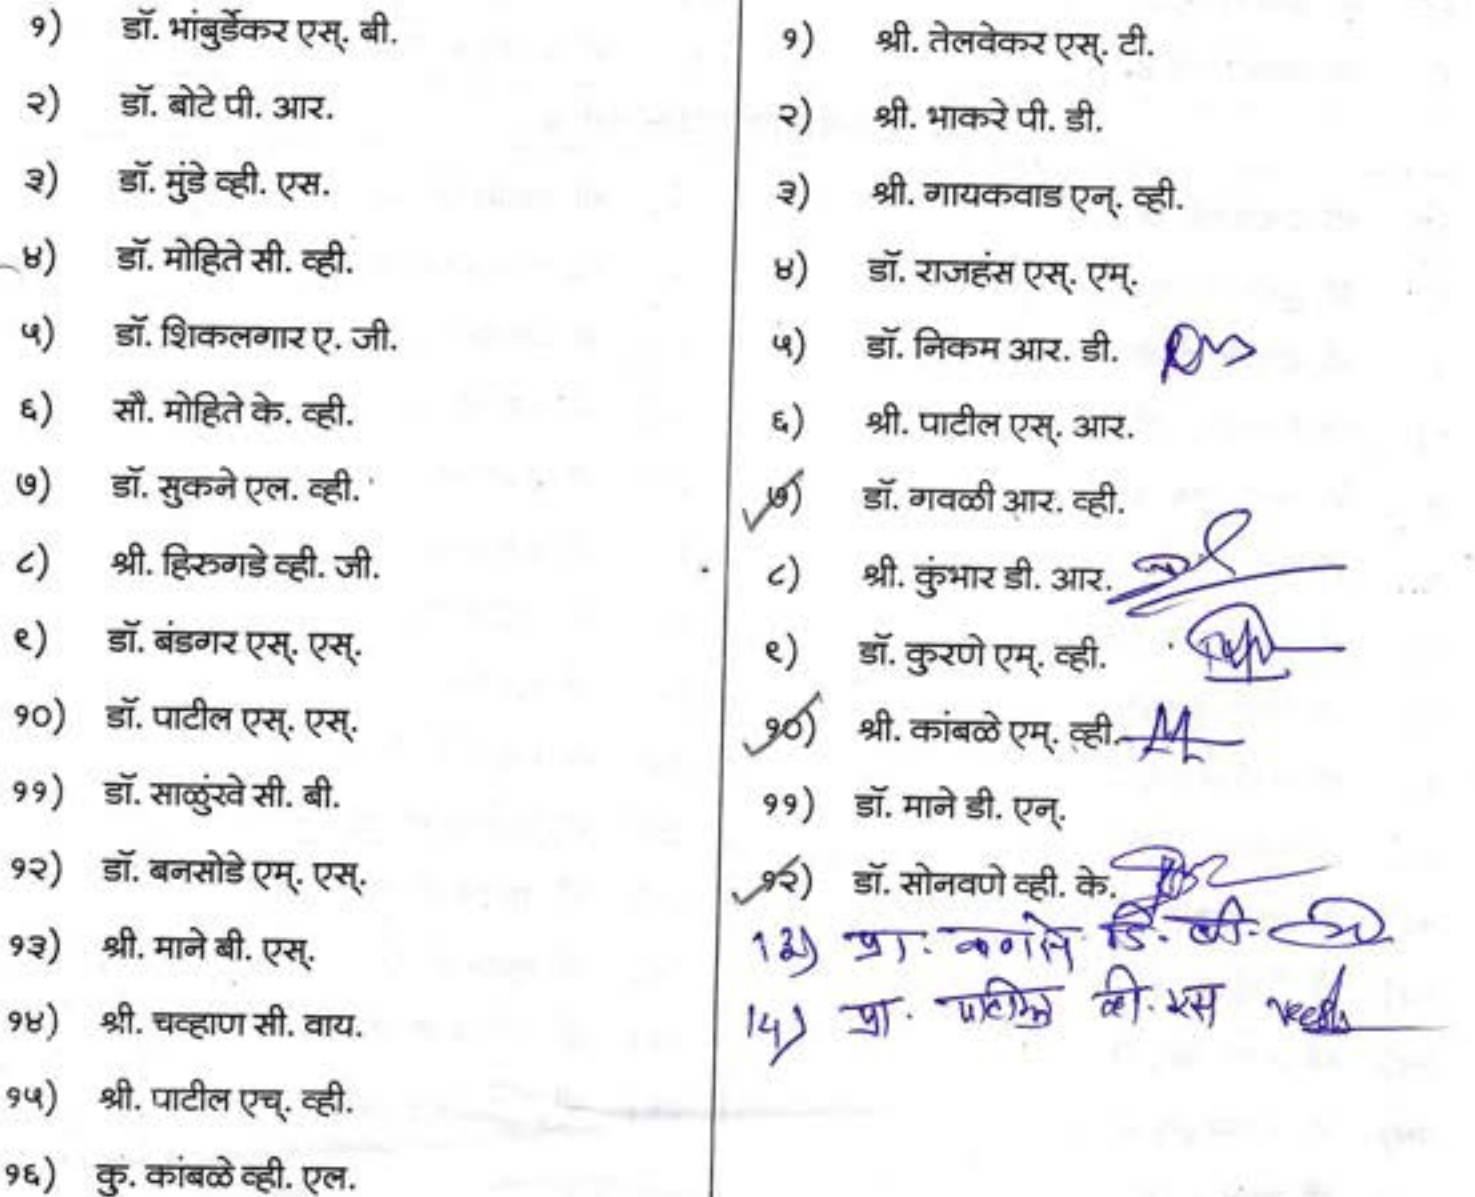 १) डॉ. भांबुर्डेकर एस्. बी.
२) डॉ. बोटे पी. आर.
३) डॉ. मुंडे व्ही. एस.
४) डॉ. मोहिते सी. व्ही.
५) डॉ. शिकलगार ए. जी.
६) सौ. मोहिते के. व्ही.
७) डॉ. सुकने एल. व्ही.
८) श्री. हिरुगडे व्ही. जी.
९) डॉ. बंडगर एस्. एस्.
१०) डॉ. पाटील एस्. एस्.
११) डॉ. साळुंखे सी. बी.
१२) डॉ. बनसोडे एम्. एस्.
१३) श्री. माने बी. एस्.
१४) श्री. चव्हाण सी. वाय.
१५) श्री. पाटील एच्. व्ही.
१६) कु. कांबळे व्ही. एल.
१) श्री. तेलवेकर एस्. टी.
२) श्री. भाकरे पी. डी.
३) श्री. गायकवाड एन्. व्ही.
४) डॉ. राजहंस एस्. एम्.
५) डॉ. निकम आर. डी.
६) श्री. पाटील एस्. आर.
७) डॉ. गवळी आर. व्ही.
८) श्री. कुंभार डी. आर.
९) डॉ. कुरणे एम्. व्ही.
१०) श्री. कांबळे एम्. व्ही.
११) डॉ. माने डी. एन्.
१२) डॉ. सोनवणे व्ही. के.
13) प्रा.
14) प्रा. पाटील व्ही. एस